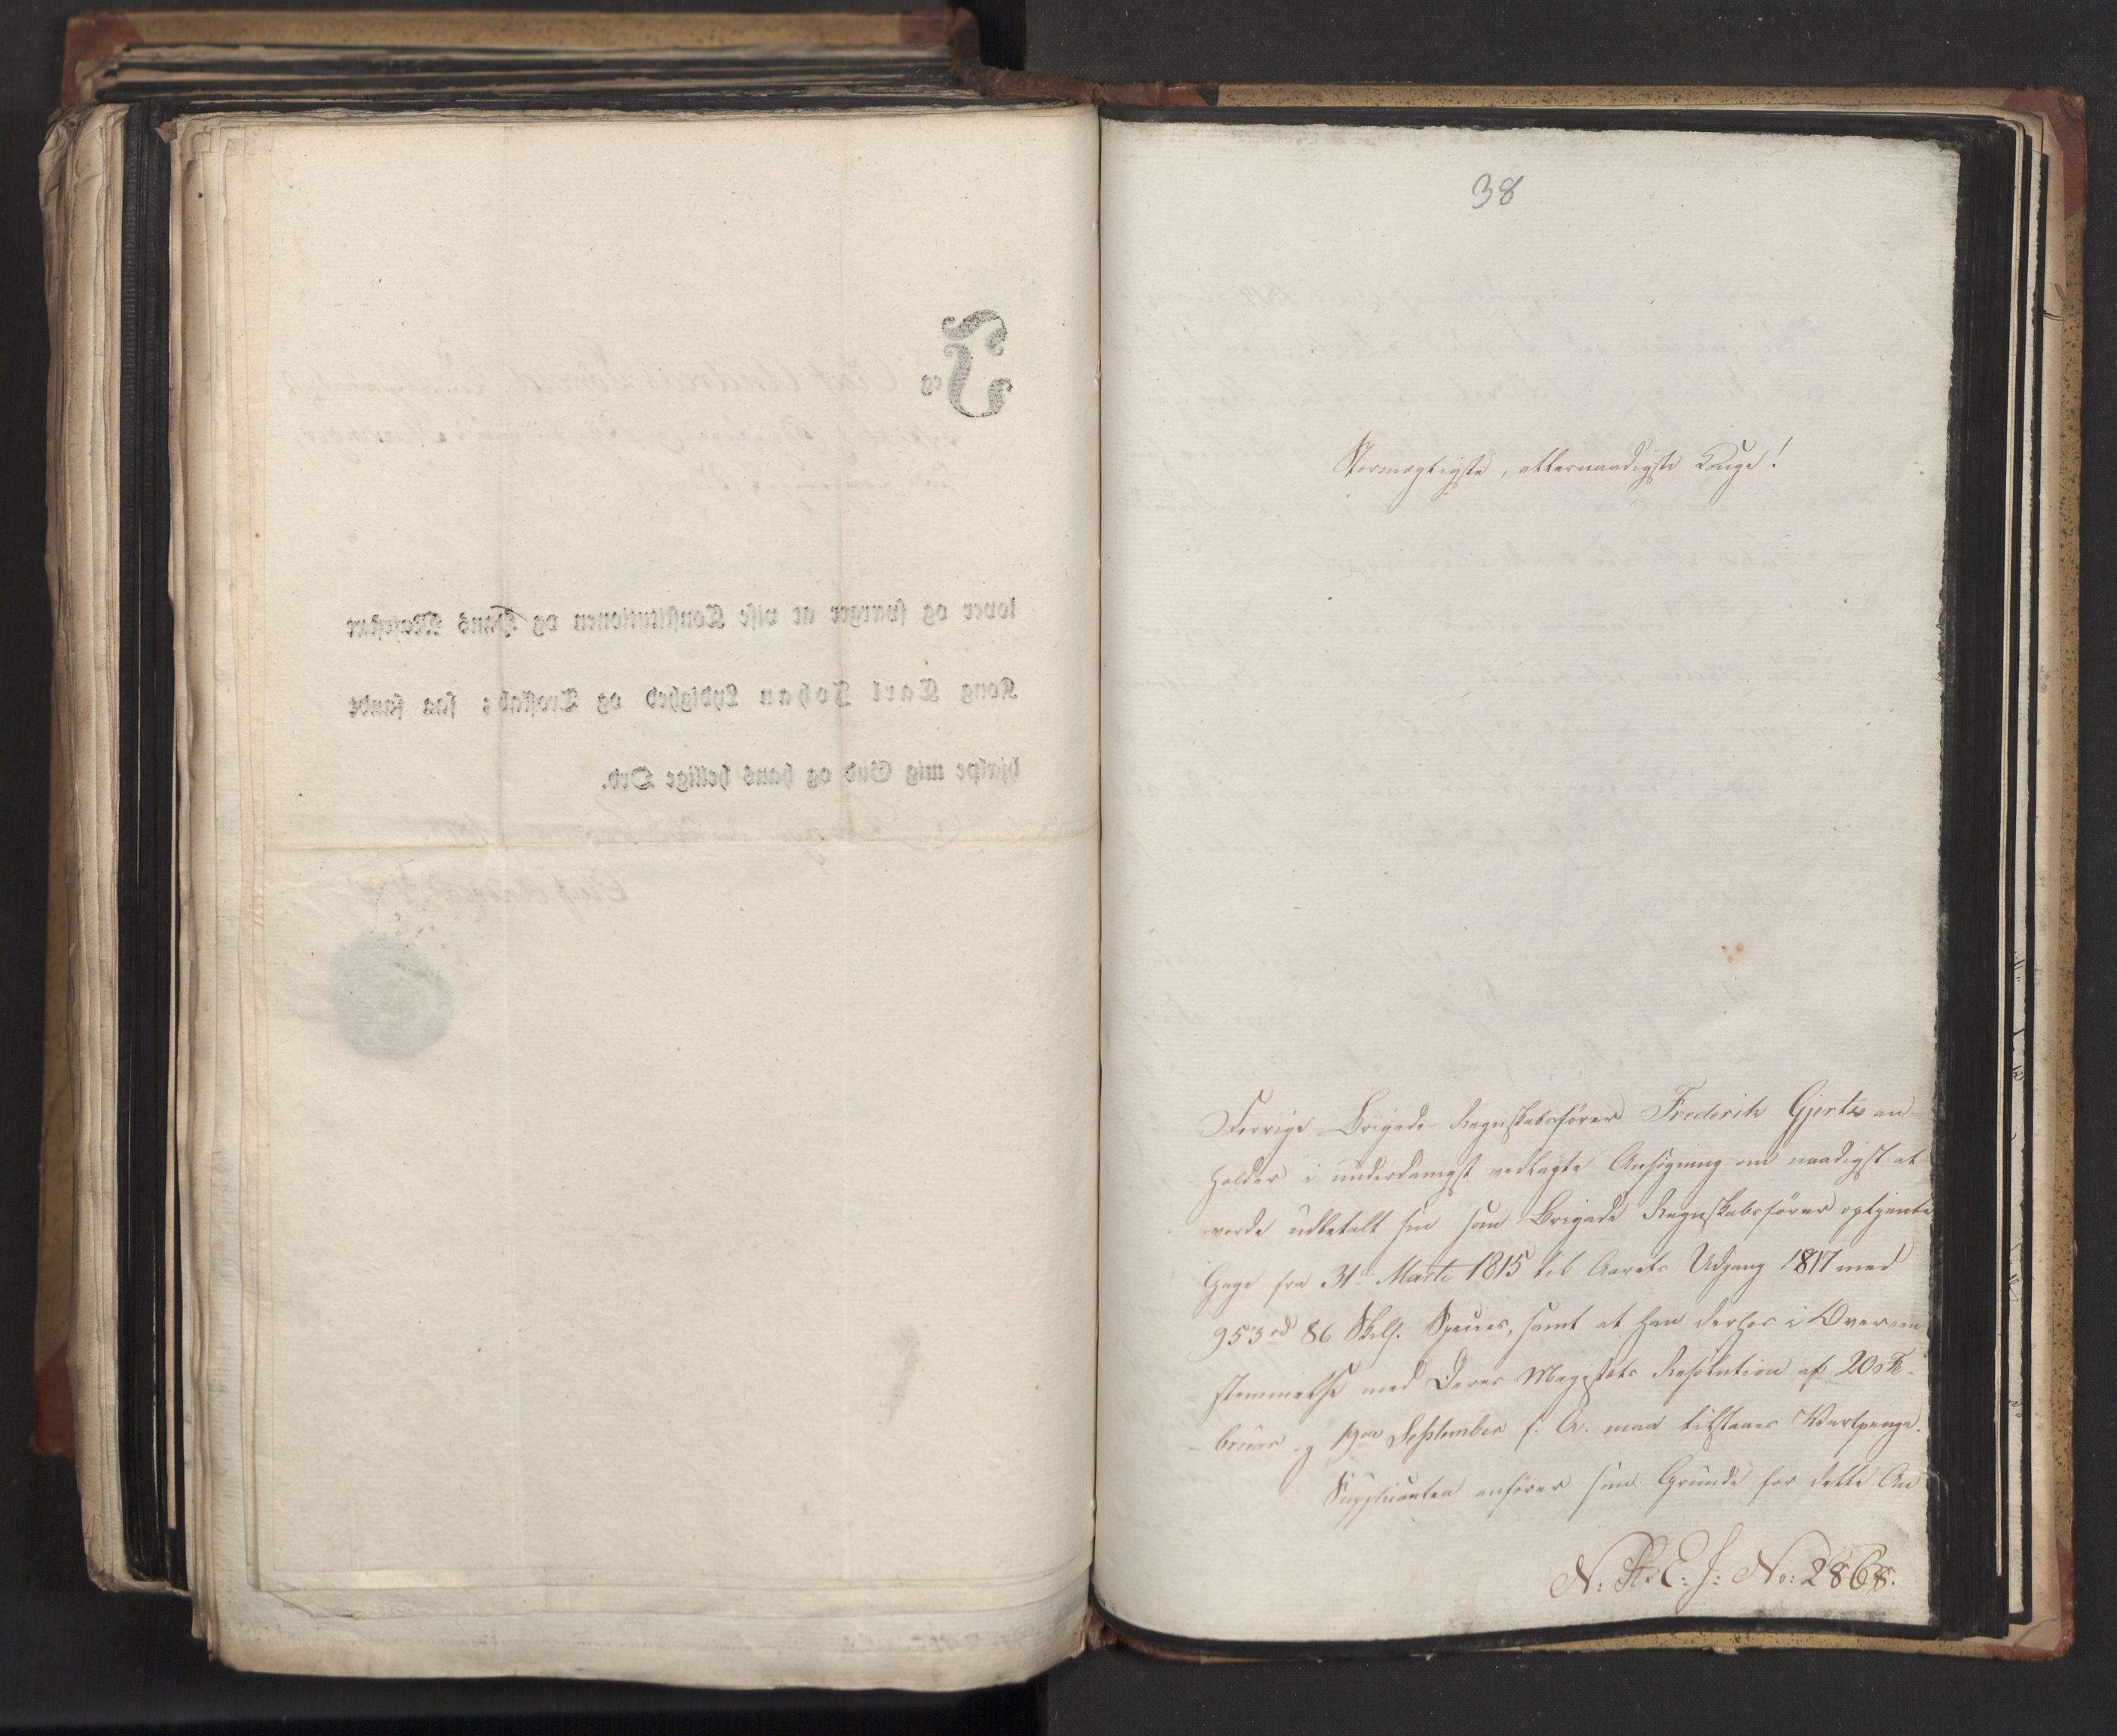 38
Stormægtigste, allernaadigste Konge!
Forrige Brigade-Regnskabsförer Frederik Gjertz an-
holder i underdanigst vedlagte Ansögning om naadigst at
vorde udbetalt sin som Brigade Regnskabsförer optjente
Gage fra 31te Marti 1815 til Aarets Udgang 1817 med
953 rd 86 Skill. Species, samt at han derhos i Overeen-
stemmelse med Deres Majestæts Resolution af 20de Fe-
bruar og 19de September f. A. maa tilstaaes Vartpenge.
Supplicanten anförer som Grunde for dette An
N: R. E. J: No: 2868.
lover og sværger at vise Constitutionen og Hans Majestæt
Kong Carl Johan Lydighed og Troskab; saa sandt
hjælpe mig Gud og hans hellige Ord.